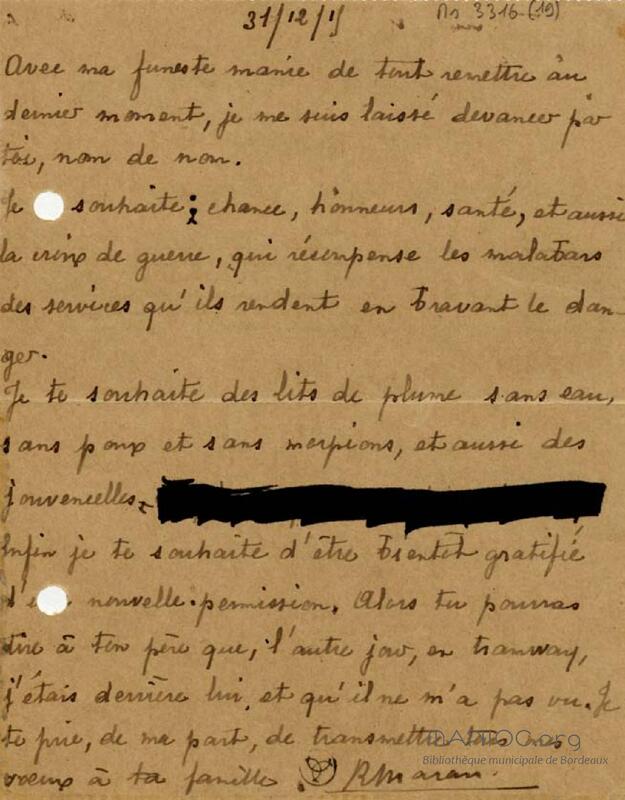 31/12/15
Ms 3316 (19)
Avec ma funeste manie de tout remettre au
dernier moment, je me suis laissé devancer par
toi, nom de nom.
Je souhaite : chance, honneurs, santé, et aussi
la croix de guerre, qui récompense les malabars
des services qu'ils rendent en bravant le dan-
ger.
Je te souhaite des lits de plume sans eau,
sans poux et sans morpions, et aussi des
jouvencelles
Enfin je te souhaite d'être bientôt gratifié
nouvelle permission. Alors tu pourras
dire à ton père que, l'autre jour, en tramway,
j'étais derrière lui et qu'il ne m'a pas vu. Je
te prie, de ma part, de transmettre tous mes
vœux à ta famille. RMaran.
Bibliothèque municipale de Bordeaux